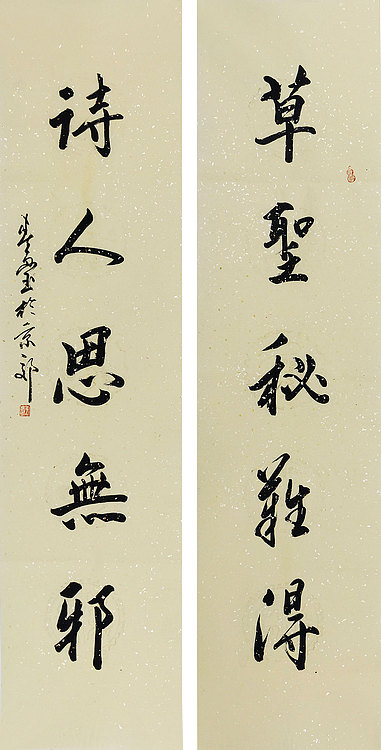 草聖秘難得
詩人思無邪
於京郊